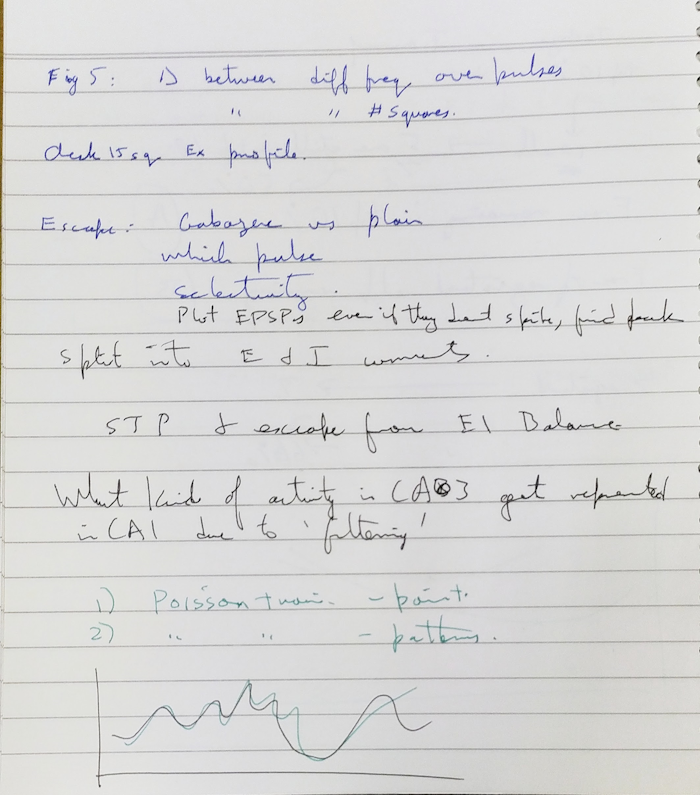 Fig 5: Δ between diff freq over pulses
" " # Squares.
check 15 sq Ex profile.
Escape: Gabazene vs plain
which pulse
selectivity.
Plot EPSPs even if they don't spike, find peak
split into E & I currents.
STP & escape from EI Balance
What kind of activity in CA3 get represented
in CA1 due to 'filtering'
1) Poisson train. - point.
2) " " - patterns.